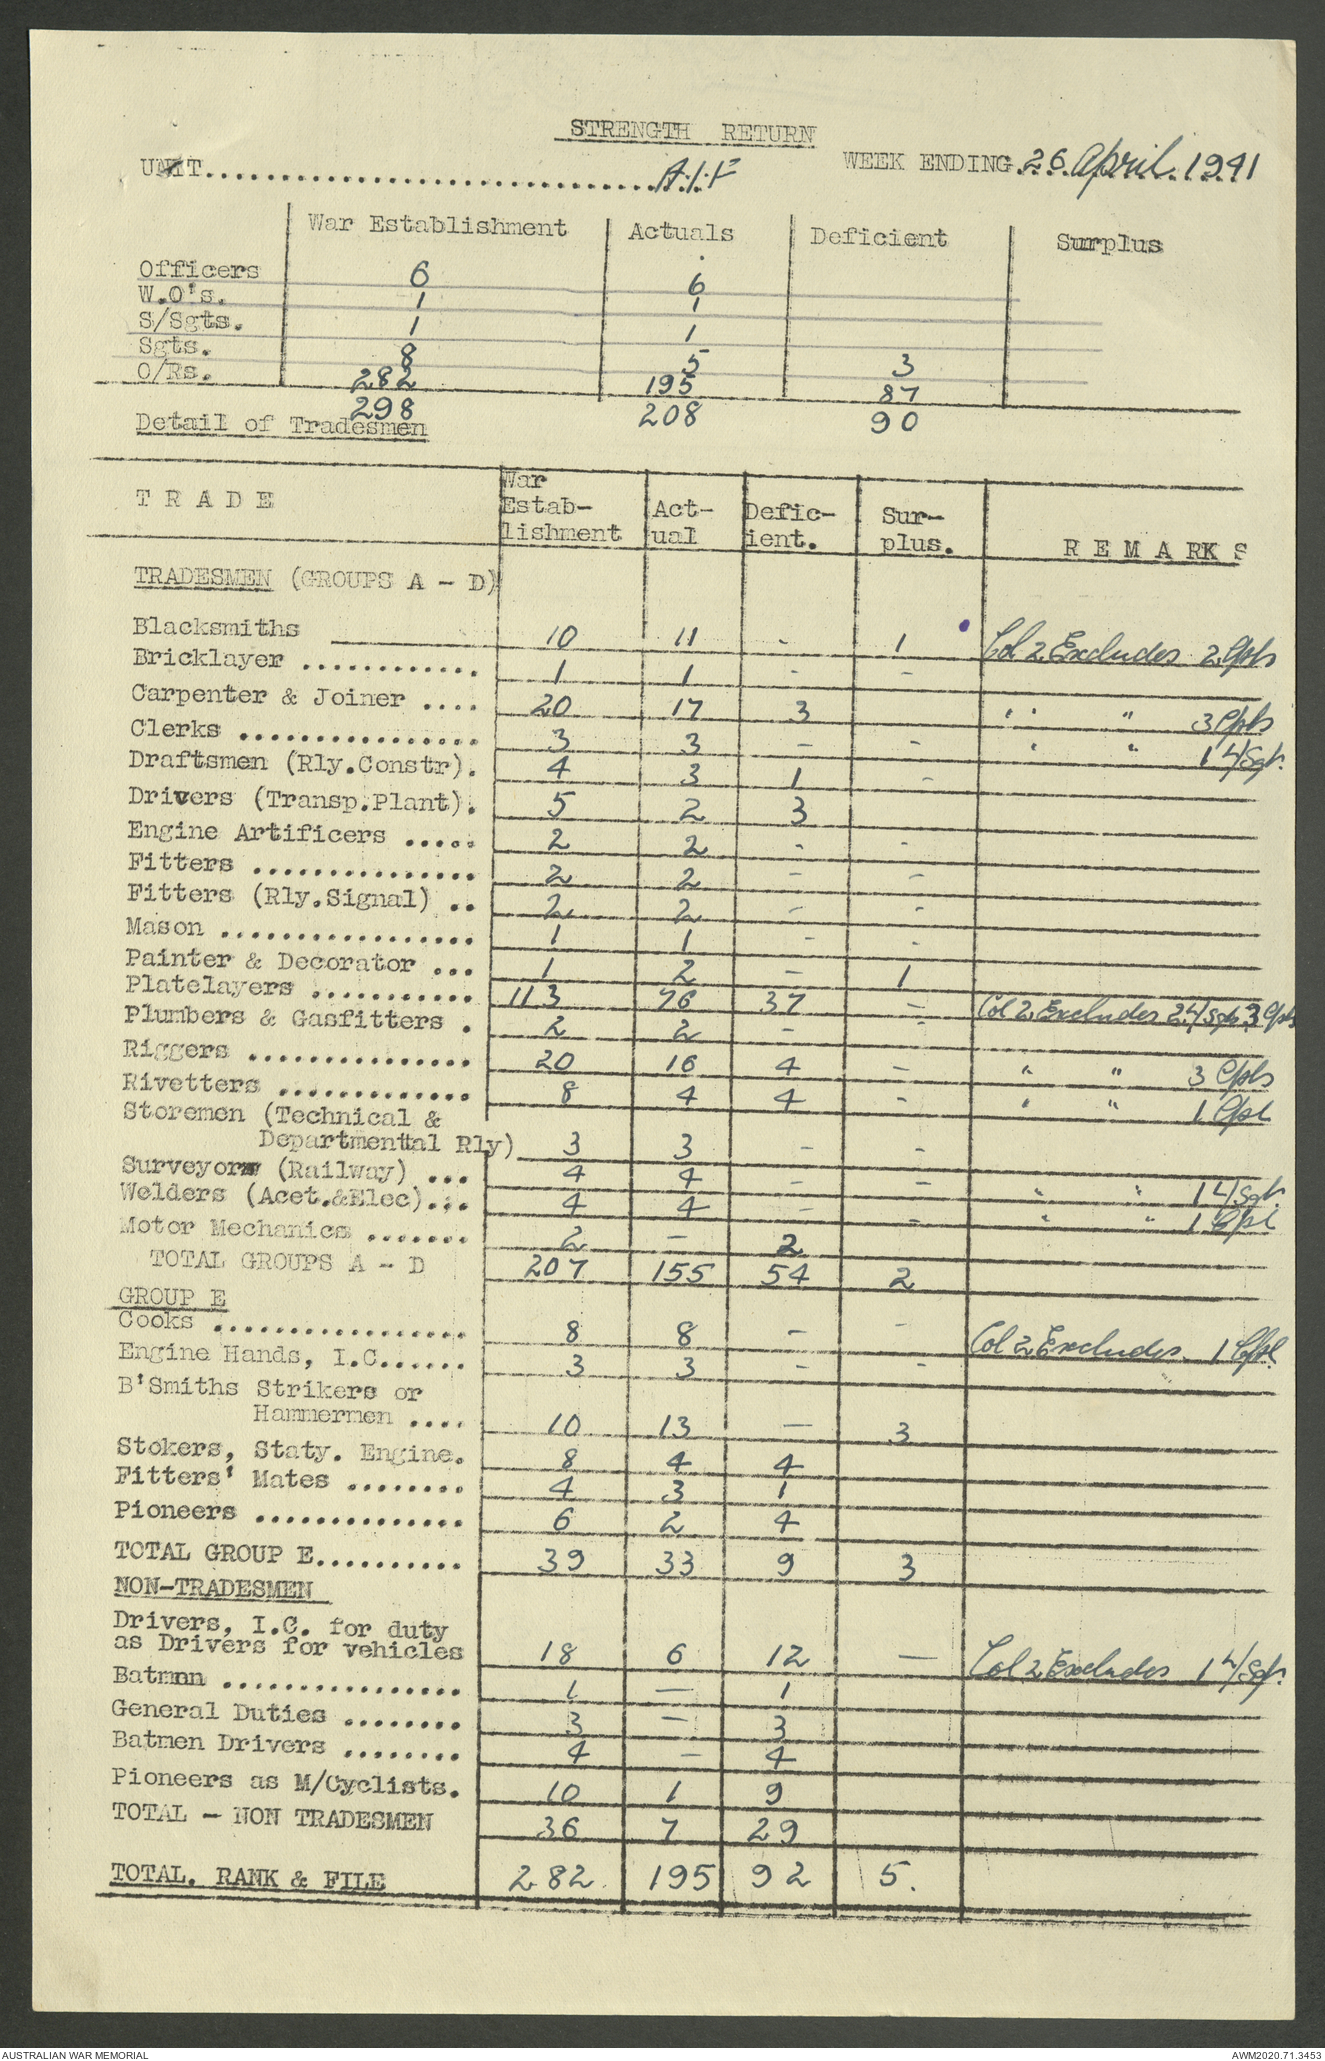 STRENGTH RETURN
UNIT................................A.I.F WEEK ENDING.26.April.1941
War Establishment Actuals Deficient Surplus
Officers 6 6
W.O's. 1 1
S/Sgts. 1 1
Sgts. 8 5 3
O/Rs. 282 195 87
298 208 90
Detail of Tradesmen
TRADE War Estab-lishment Act-ual Defic-ient. Sur-plus. REMARKS
TRADESMEN (GROUPS A - D)
Blacksmiths 10 11 - 1 Col 2 Excludes 2 Cpls
Bricklayer ............ 1 1 - -
Carpenter & Joiner .... 20 17 3 " " 3 Cpls
Clerks ................ 3 3 - - " " 1 L/Sgt.
Draftsmen (Rly.Constr). 4 3 1 -
Drivers (Transp.Plant). 5 2 3
Engine Artificers ..... 2 2 - -
Fitters ............... 2 2 - -
Fitters (Rly.Signal) .. 2 2 - -
Mason ................. 1 1 - -
Painter & Decorator ... 1 2 - 1
Platelayers ........... 113 76 37 - Col 2 Excludes 2 L/Sgts 3 Cpls
Plumbers & Gasfitters . 2 2 - -
Riggers ............... 20 16 4 - " " 3 Cpls
Rivetters ............. 8 4 4 - " " 1 Cpl
Storemen (Technical &
Departmenttal Rly) 3 3 - -
Surveyors (Railway) ... 4 4 - - " " 1 L/Sgt.
Welders (Acet.&Elec)... 4 4 - - " " 1 Cpl
Motor Mechanics ....... 2 - 2
TOTAL GROUPS A - D 207 155 54 2
GROUP E
Cooks ................. 8 8 - - Col 2 Excludes 1 Cpl.
Engine Hands, I.C...... 3 3 - -
B'Smiths Strikers or
Hammermen .... 10 13 - 3
Stokers, Staty. Engine. 8 4 4
Fitters' Mates ........ 4 3 1
Pioneers .............. 6 2 4
TOTAL GROUP E.......... 39 33 9 3
NON-TRADESMEN
Drivers, I.C. for duty
as Drivers for vehicles 18 6 12 - Col 2 Excludes 1 L/Sgt.
Batmnn ................ 1 - 1
General Duties ........ 3 - 3
Batmen Drivers ........ 4 - 4
Pioneers as M/Cyclists. 10 1 9
TOTAL - NON TRADESMEN 36 7 29
TOTAL. RANK & FILE 282. 195 92 5.
AUSTRALIAN WAR MEMORIAL AWM2020.71.3453